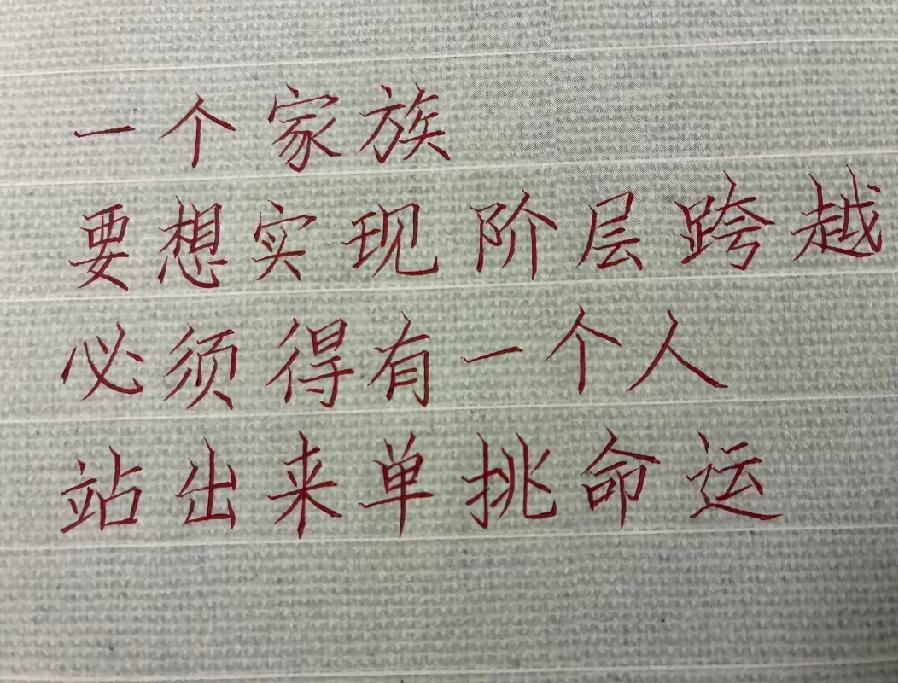 一个家族
要想实现阶层跨越
必须得有一个人
站出来单挑命运